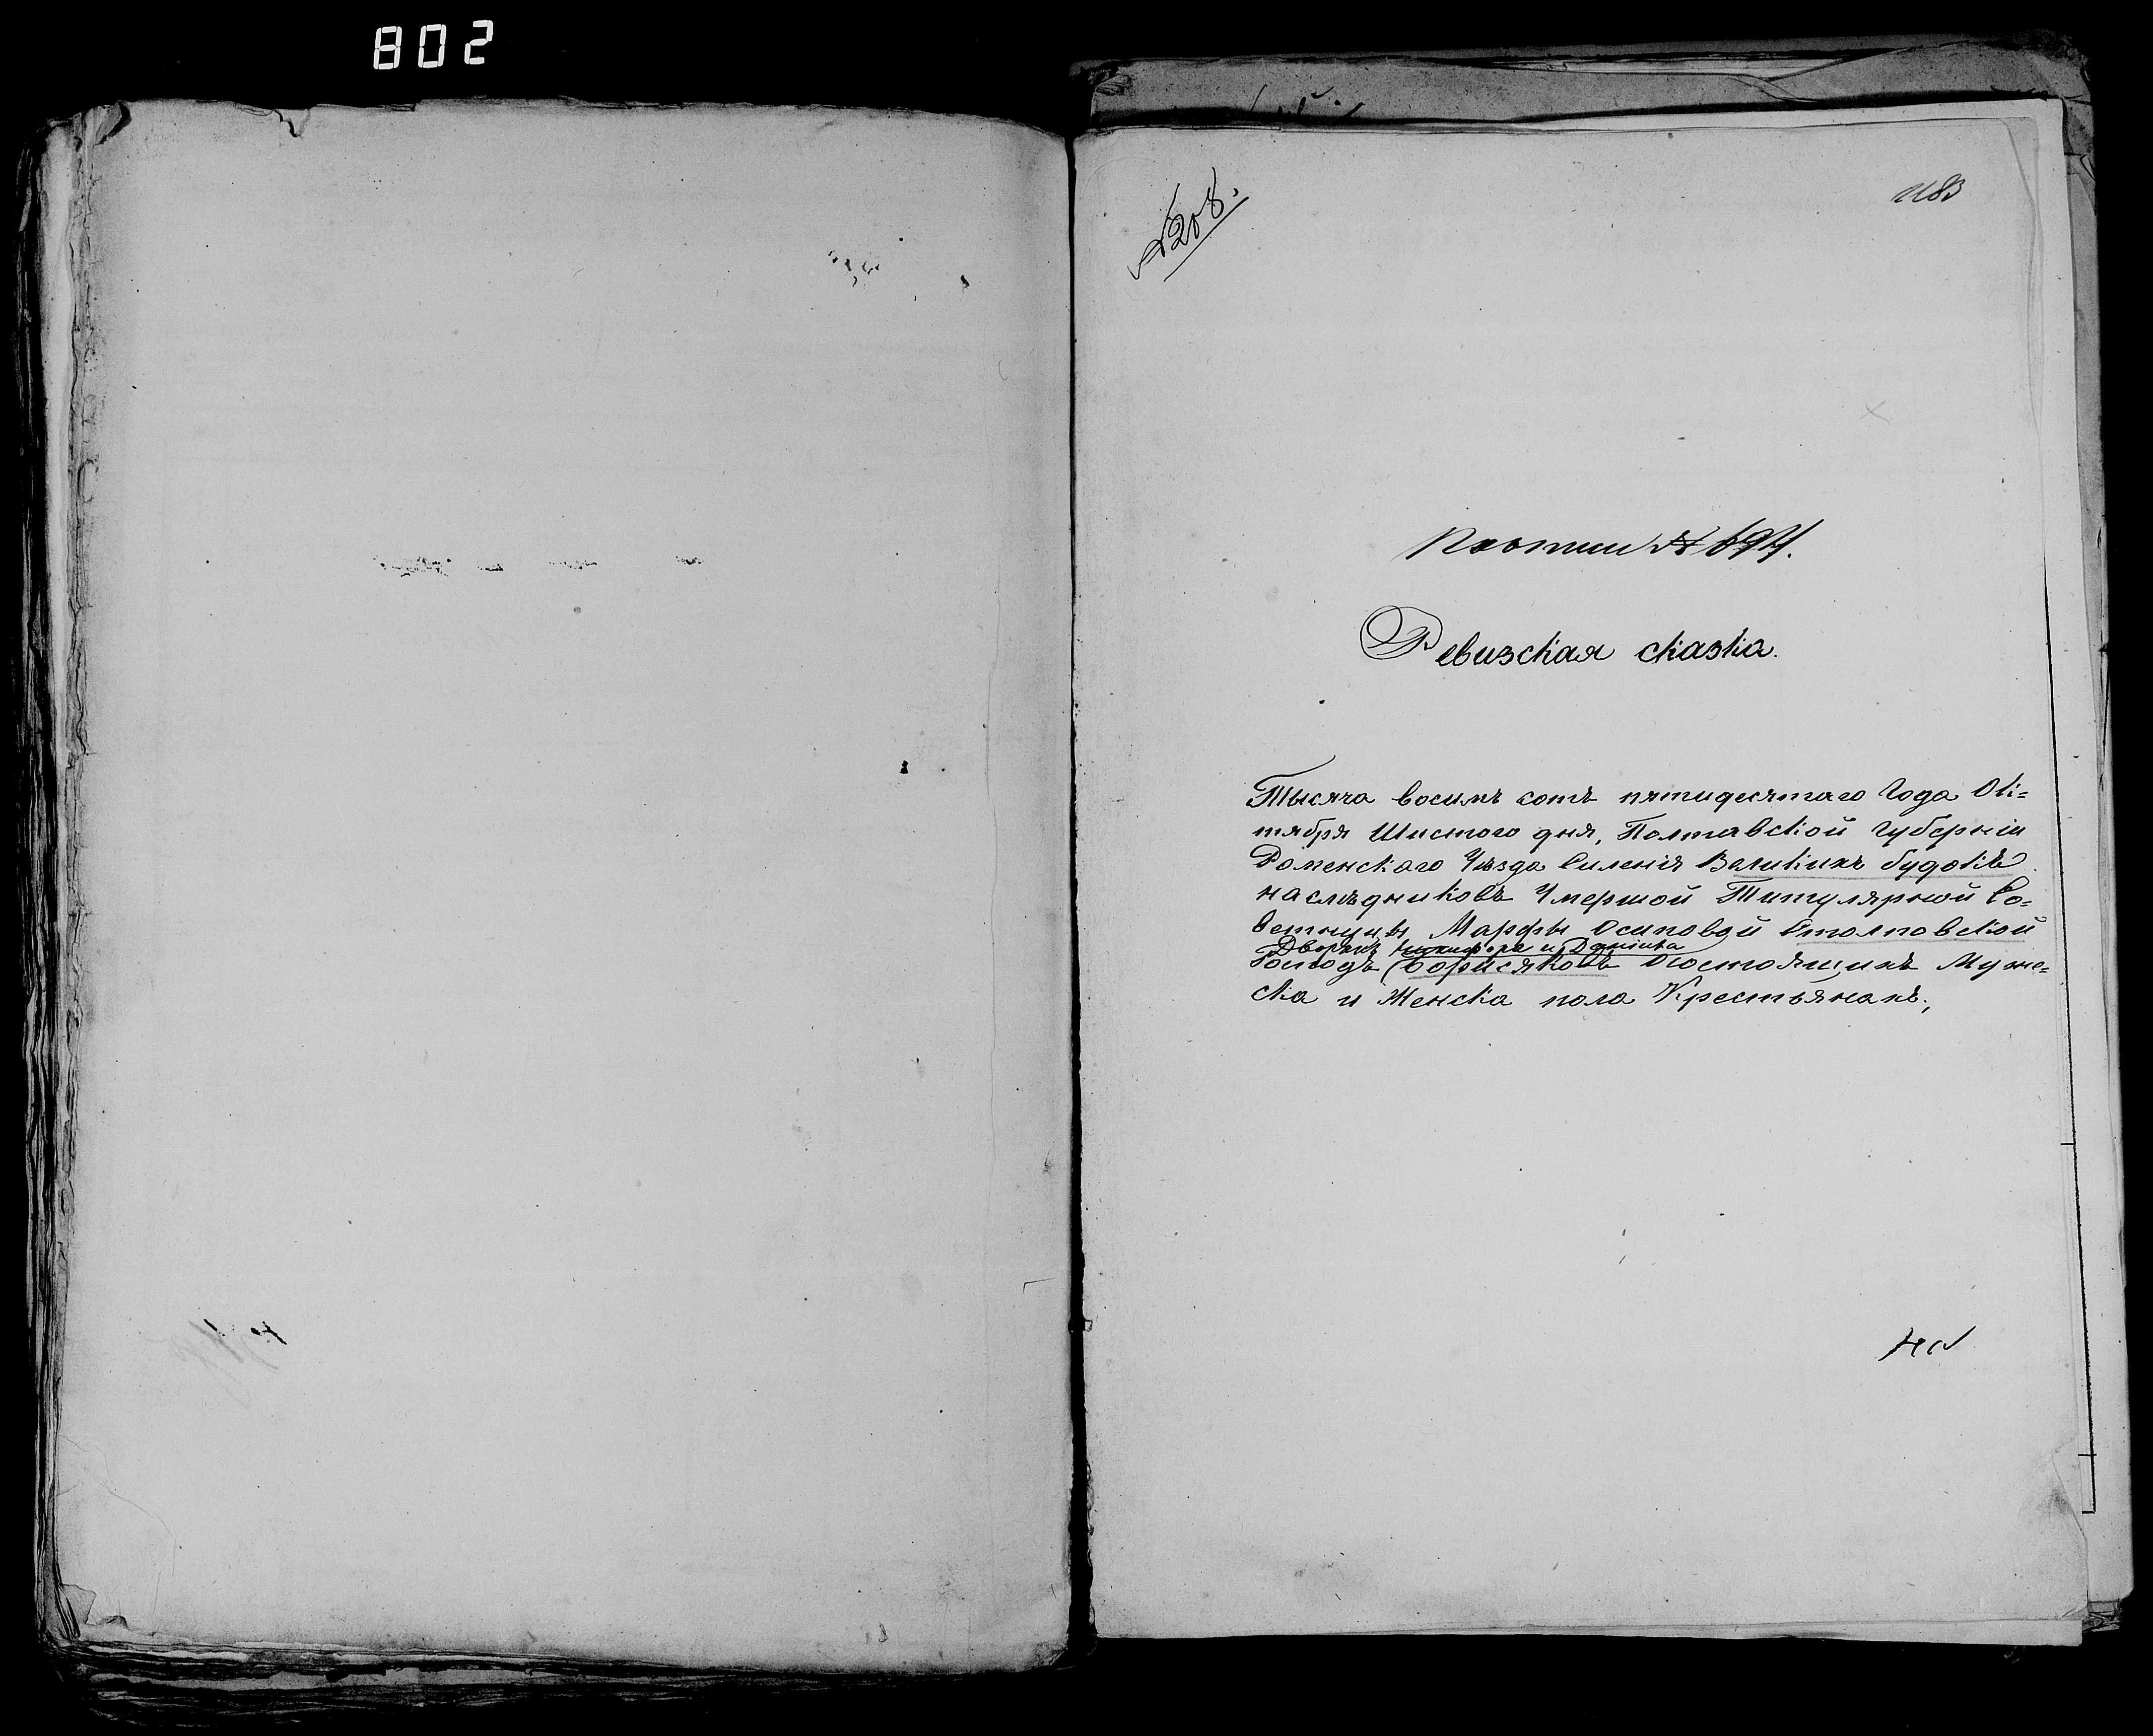 802
№208.
1183
По описи № 694.
Ревизская сказка.
Тысяча восимъ сотъ пятидесятаго Года Ок=
тября Шистого дня, Полтавской Губерніи
Роменскаго Уѣзда Силенія Великихъ будокъ
наслѣдниковъ Умершой Титулярной Со=
ветницы Марфы Осиповой Столповской
Дворянъ Никифора и Даніила
Господъ Борисяковъ О состоящихъ Муже=
ска и Женска пола Крестьянахъ.,